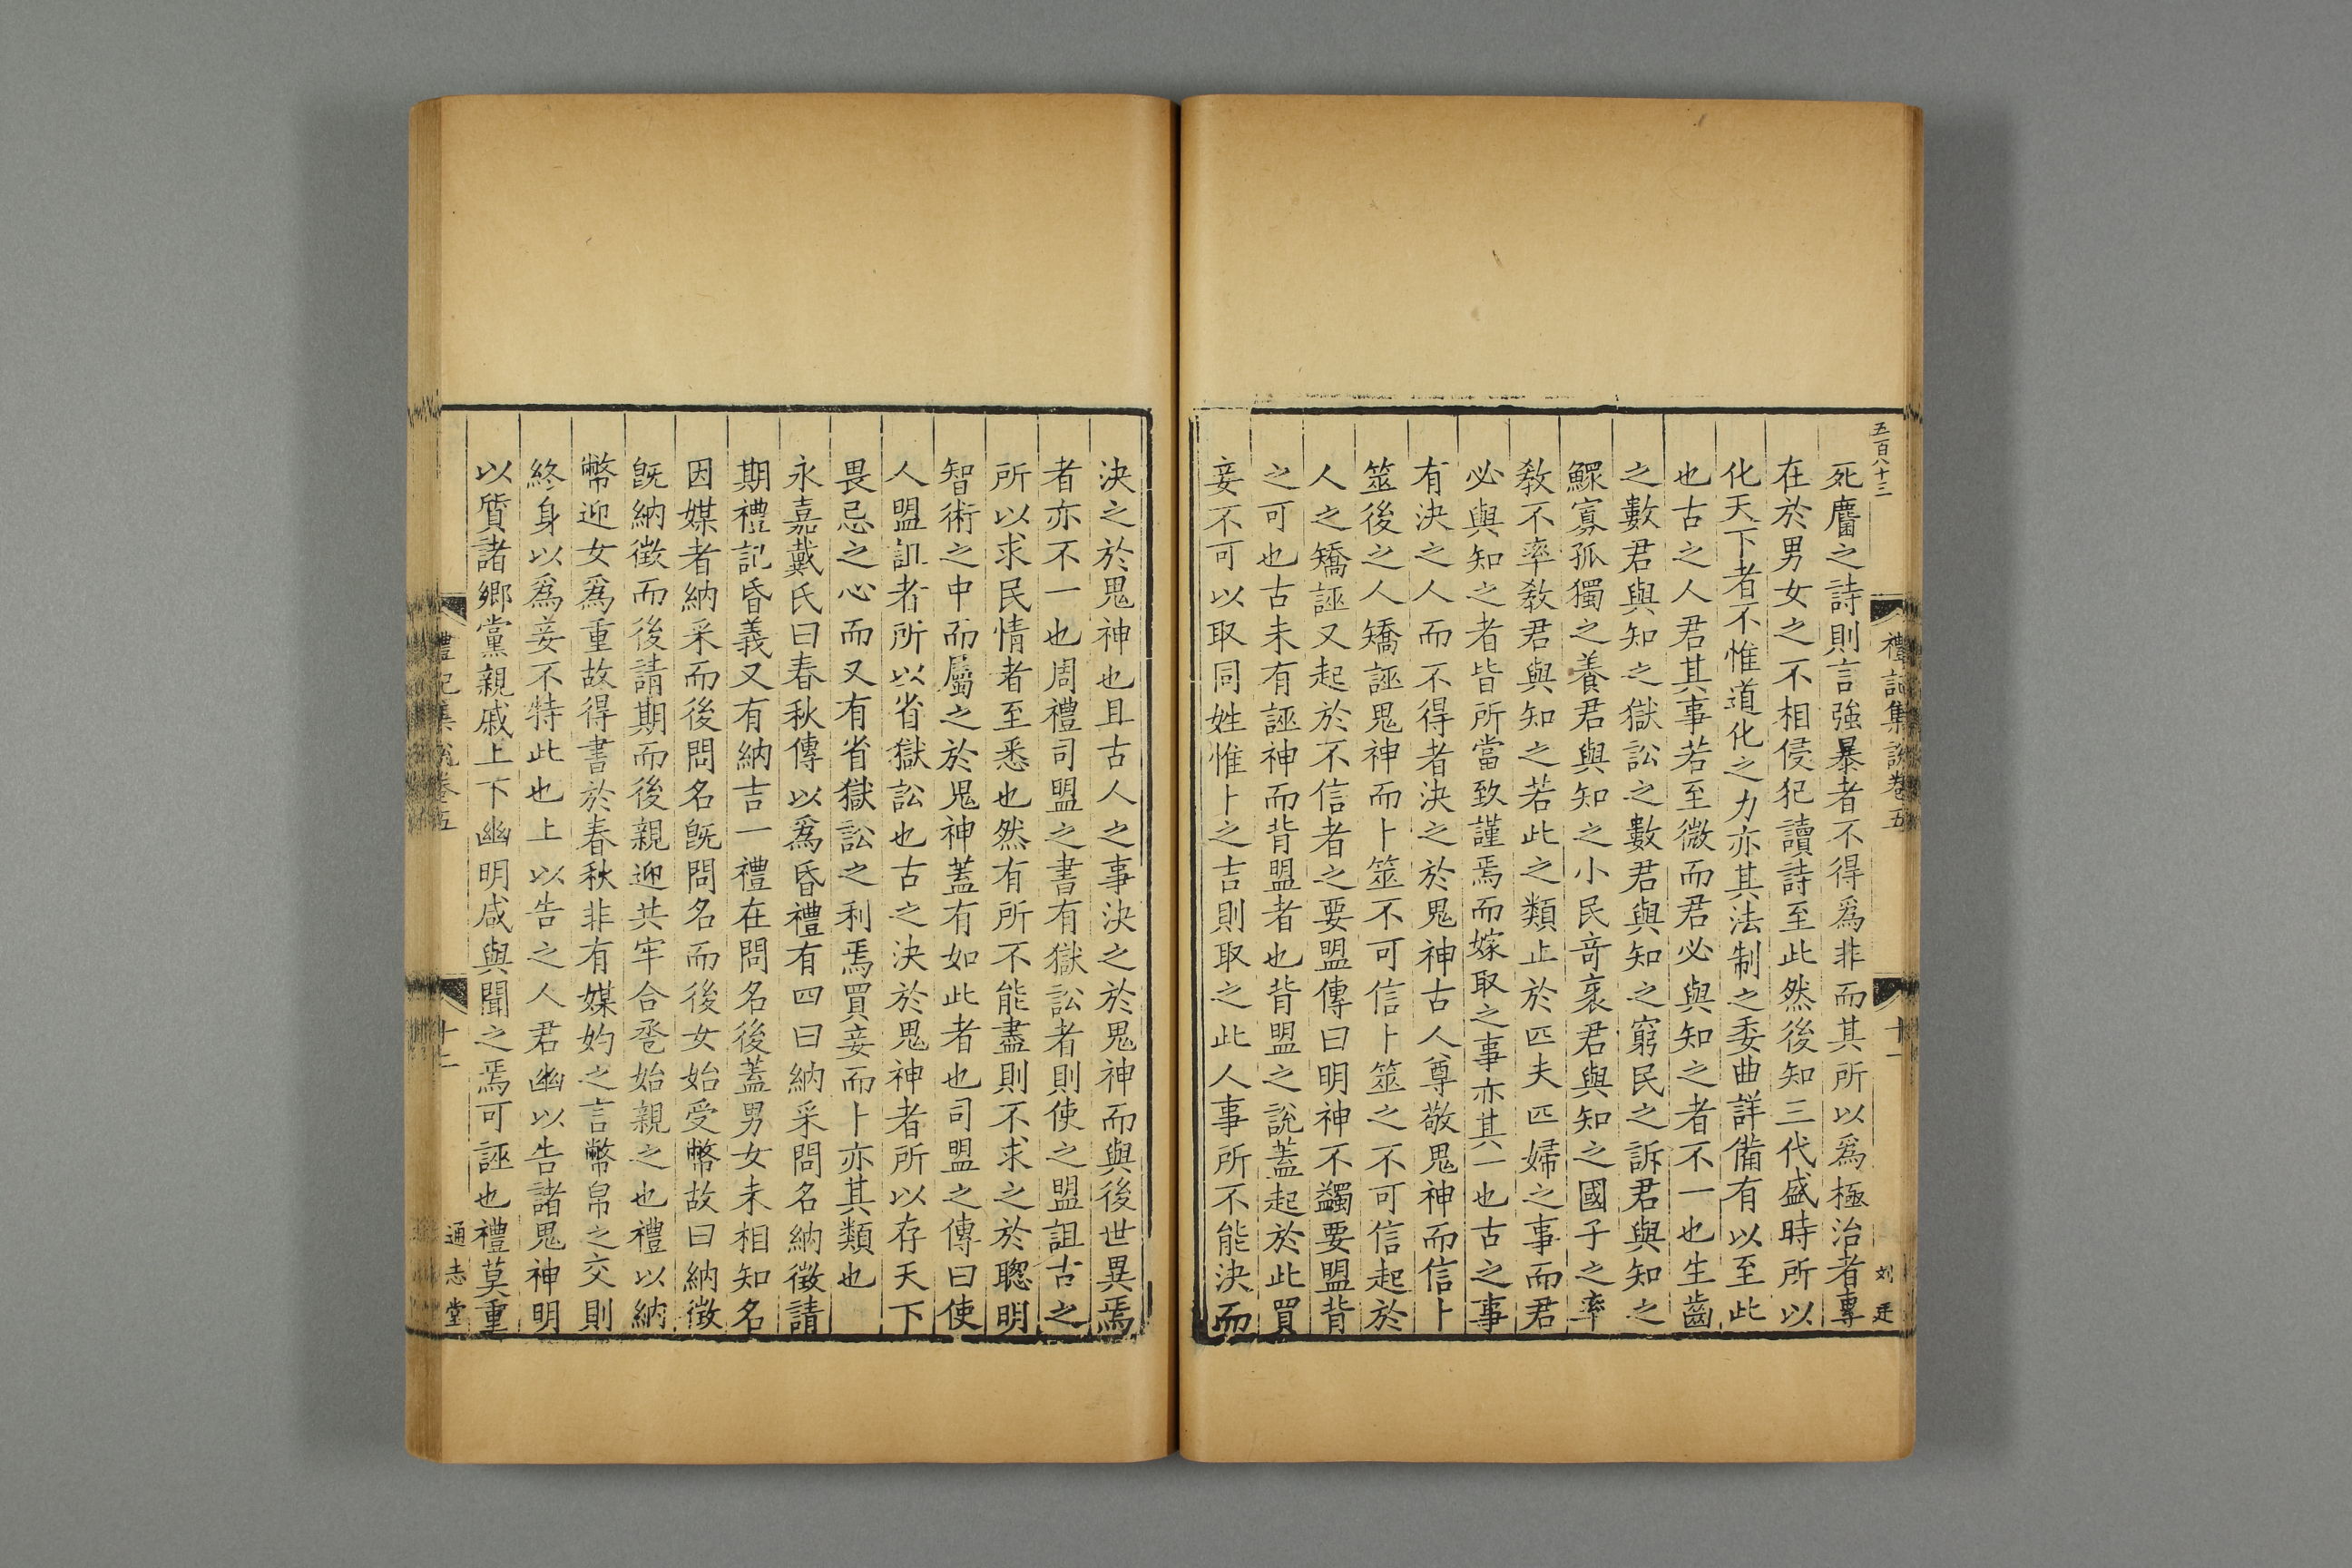 五百八十三
禮記集說卷五
十一
刘
死麕之詩則言強暴者不得爲非而其所以爲極治者專
在於男女之不相侵犯讀詩至此然後知三代盛時所以
化天下者不惟道化之力亦其法制之委曲詳備有以至此
也古之人君其事若至微而君必與知之者不一也生齒
之數君與知之獄訟之數君與知之窮民之訴君與知之
鰥寡孤獨之養君與知之小民竒衺君與知之國子之率
敎不率敎君與知之若此之類止於匹夫匹婦之事而君
必與知之者皆所當致謹焉而嫁取之事亦其一也古之事
有決之人而不得者決之於鬼神古人尊敬鬼神而信卜
筮後之人矯誣鬼神而卜筮不可信卜筮之不可信起於
人之矯誣又起於不信者之要盟傳曰明神不蠲要盟背
之可也古未有誣神而背盟者也背盟之說蓋起於此買
妾不可以取同姓惟卜之吉則取之此人事所不能決而
決之於鬼神也且古人之事決之於鬼神而與後世異焉
者亦不一也周禮司盟之書有獄訟者則使之盟詛古之
所以求民情者至悉也然有所不能盡則不求之於聰明
智術之中而屬之於鬼神蓋有如此者也司盟之傳曰使
人盟詛者所以省獄訟也古之決於鬼神者所以存天下
畏忌之心而又有省獄訟之利焉買妾而卜亦其類也
永嘉戴氏曰春秋傳以爲昏禮有四曰納采問名納徵請
期禮記昏義又有納吉一禮在問名後蓋男女未相知名
因媒者納采而後問名旣問名而後女始受幣故曰納徵
旣納徵而後請期而後親迎共牢合巹始親之也禮以納
幣迎女爲重故得書於春秋非有媒妁之言幣帛之交則
終身以爲妾不特此也上以告之人君幽以告諸鬼神明
以質諸鄉黨親戚上下幽明咸與聞之焉可誣也禮莫重
禮記集說卷五
十二
通志堂